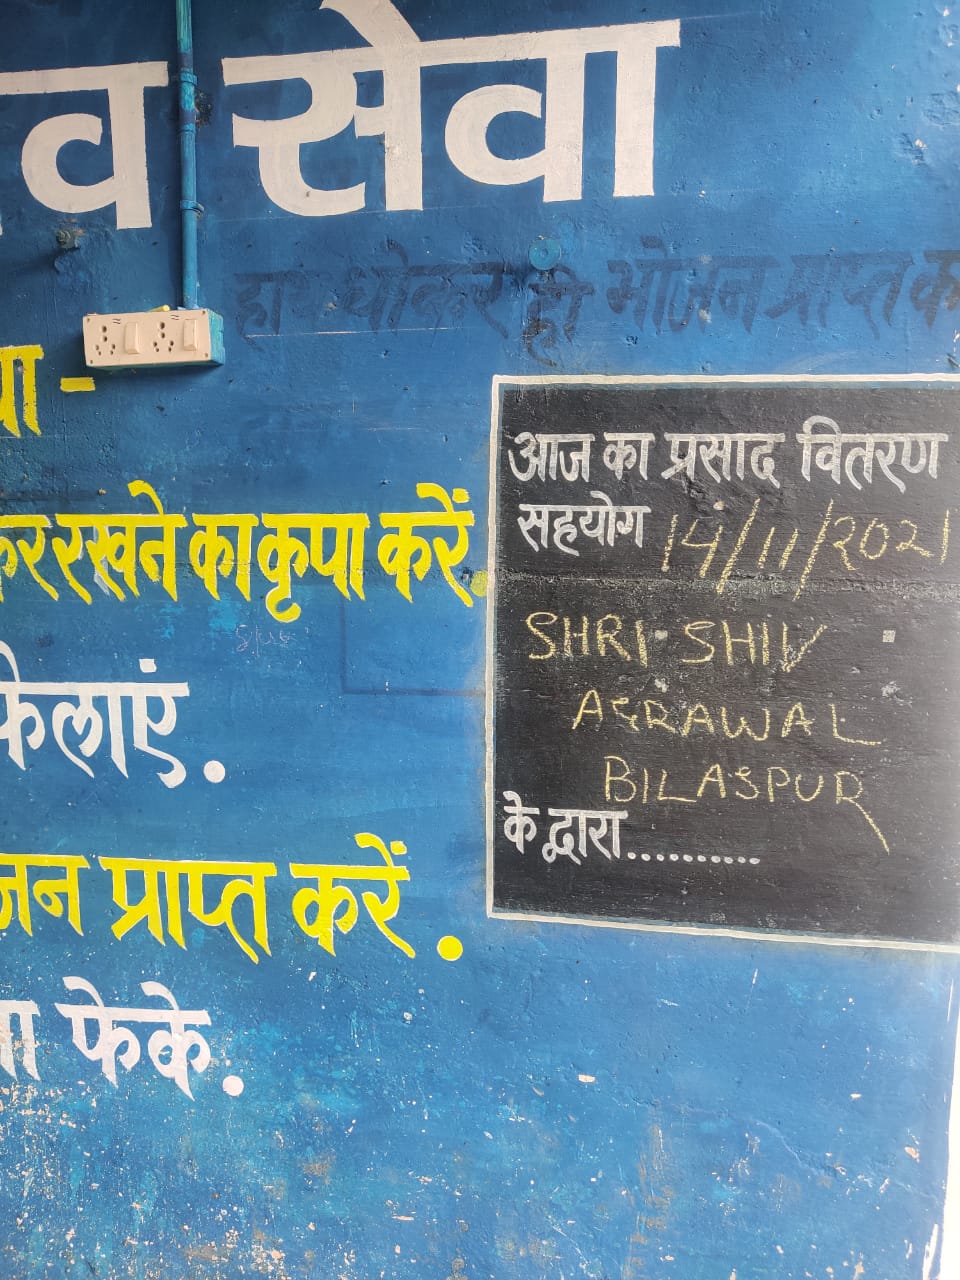 व सेवा
हाथ धोकर ही भोजन प्राप्त क
या -
कर रखने का कृपा करें.
फैलाएं.
जन प्राप्त करें.
ना फेके.
आज का प्रसाद वितरण
सहयोग 14/11/2021
SHRI SHIV
AGRAWAL
BILASPUR
के द्वारा..........